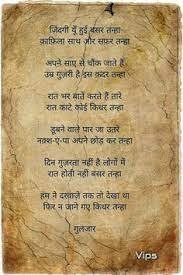 ज़िंदगी यूँ हुई बसर तन्हा
क़ाफ़िला साथ और सफ़र तन्हा
अपने साए से चौंक जाते हैं
उम्र गुज़री है इस क़दर तन्हा
रात भर बातें करते हैं तारे
रात काटे कोई किधर तन्हा
डूबने वाले पार जा उतरे
नक़्श-ए-पा अपने छोड़ कर तन्हा
दिन गुज़रता नहीं है लोगों में
रात होती नहीं बसर तन्हा
हम ने दरवाज़े तक तो देखा था
फिर न जाने गए किधर तन्हा
गुलज़ार
Vips